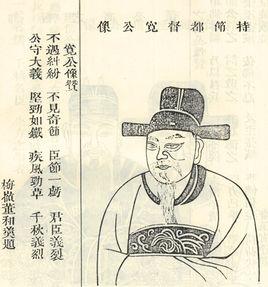 持節都督寬公像
寬公像贊
不遇糾紛 不見奇節 臣節一虧 君臣義裂
公守大義 堅勁如鐵 疾風勁草 千秋義烈
梅嶺董和異題